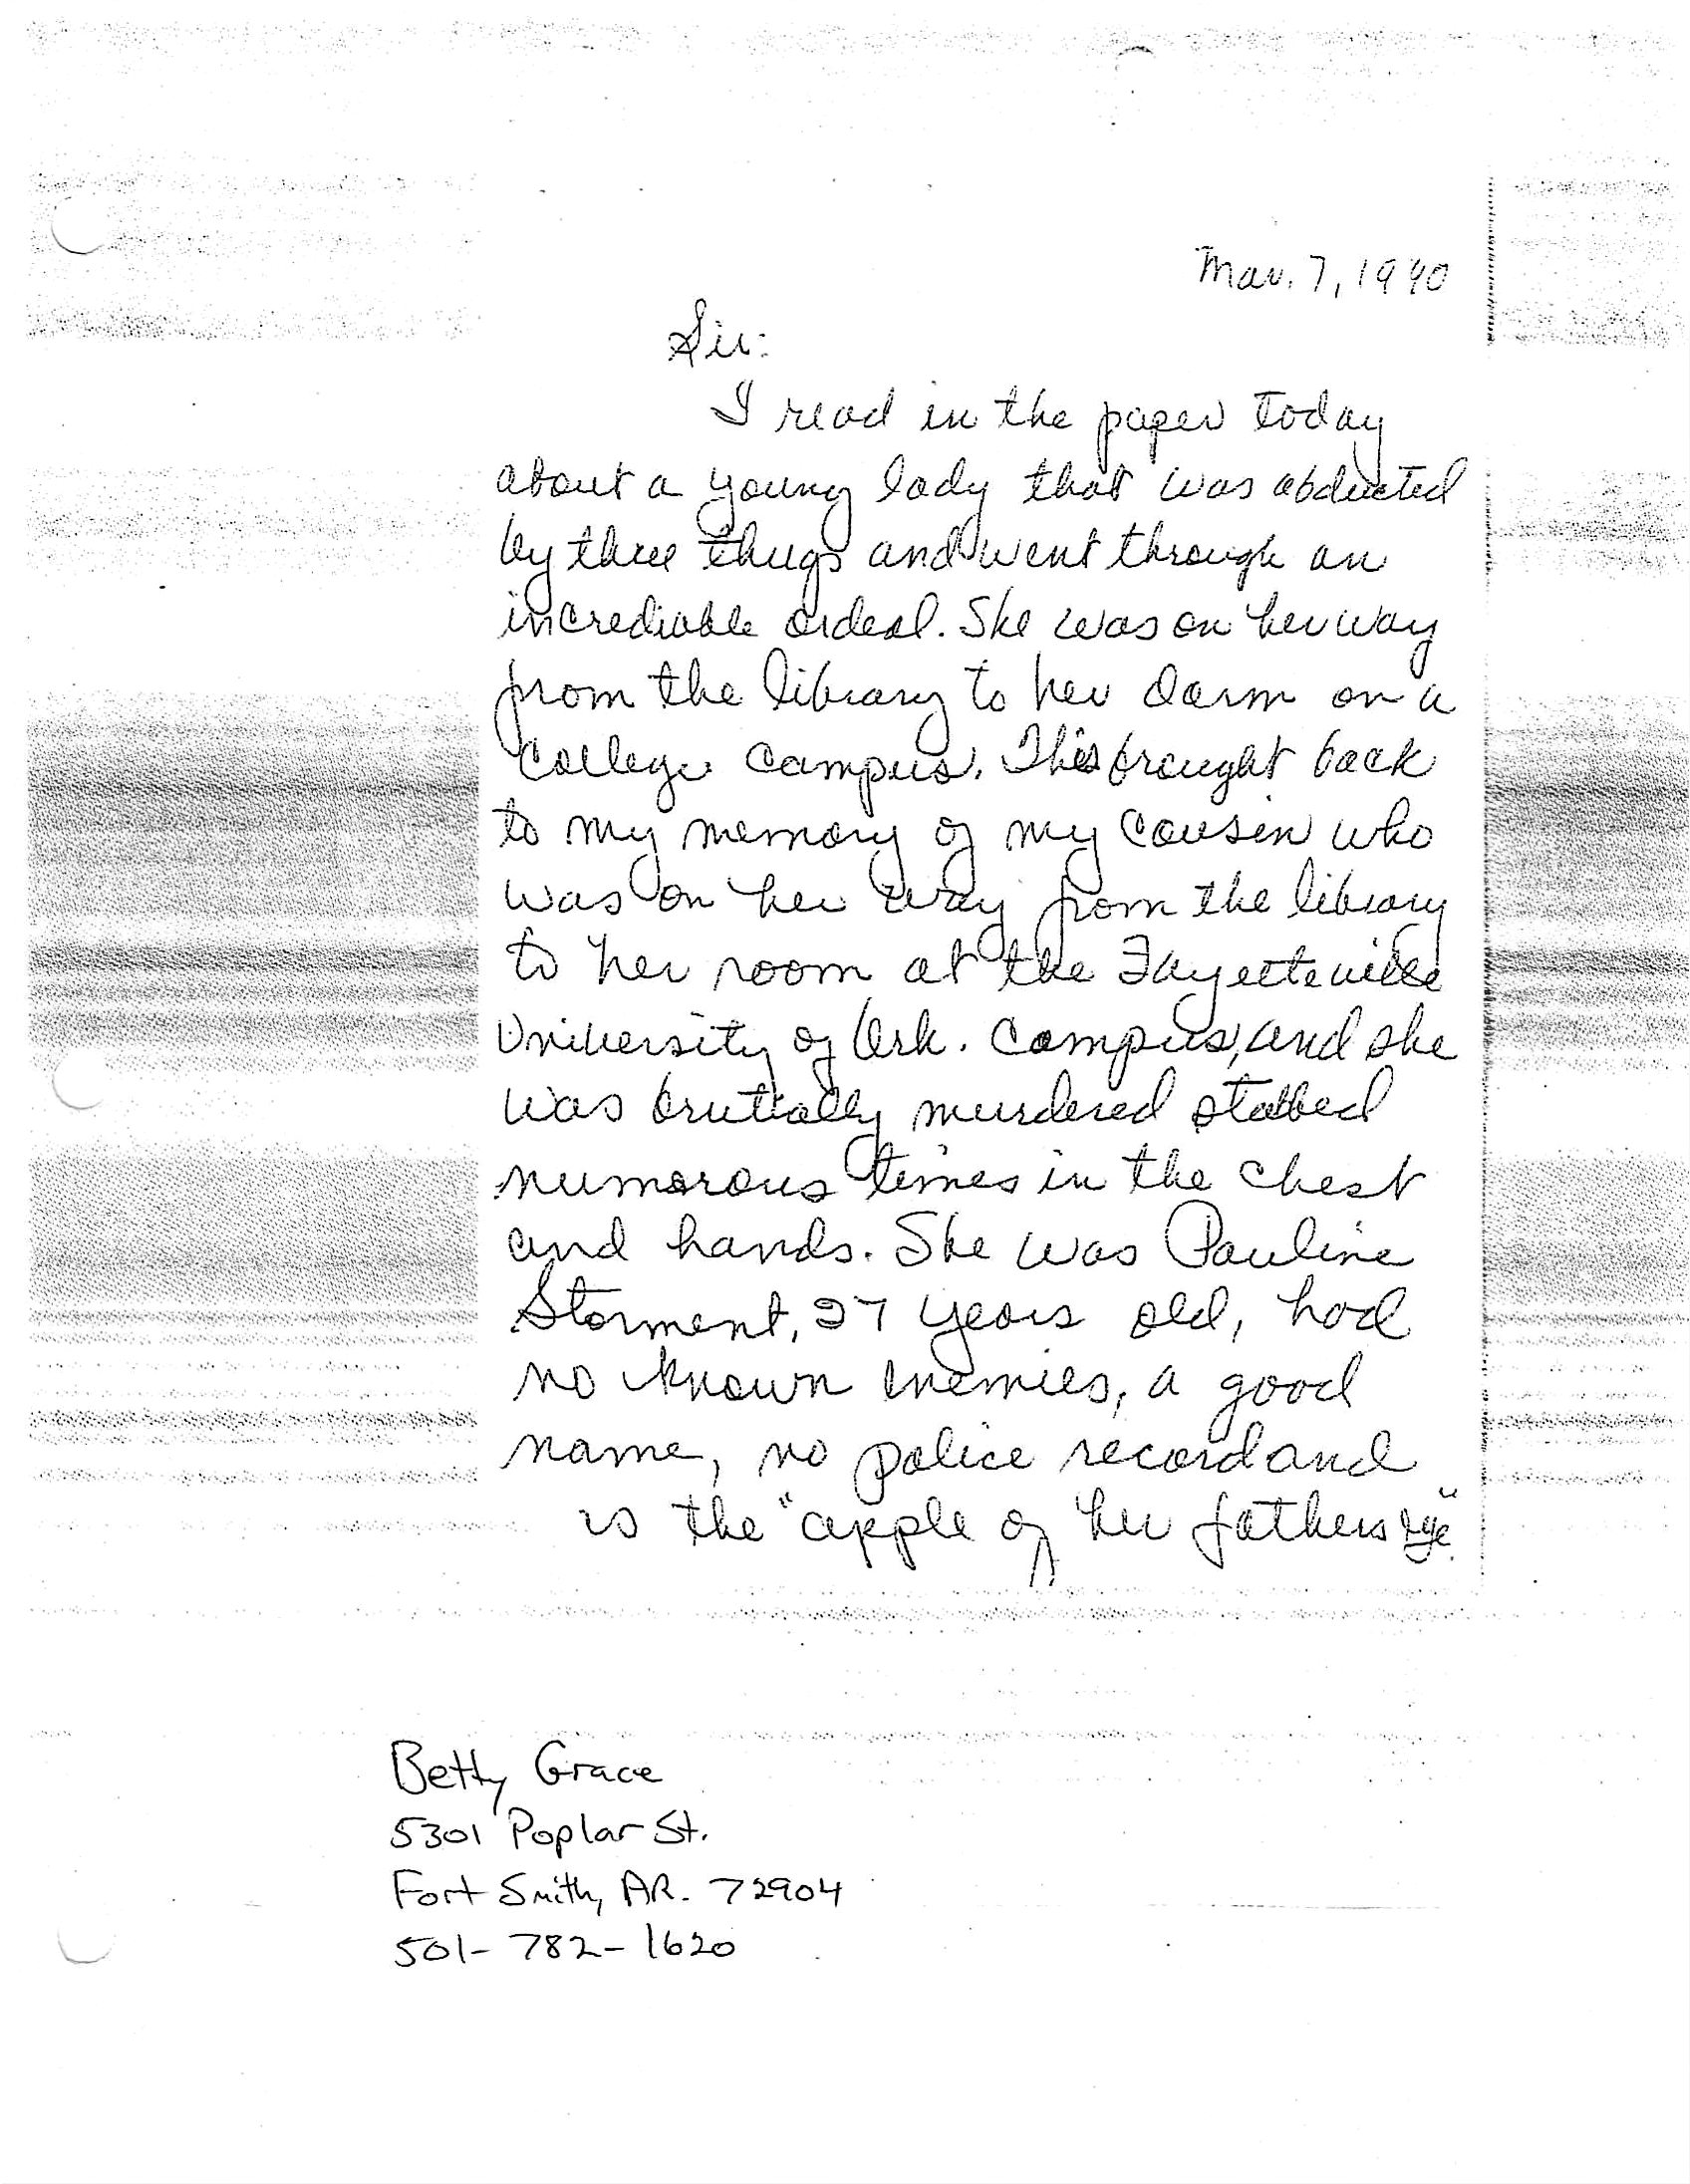 Mar. 7, 1990
Sir:
I read in the paper today
about a young lady that was abducted
by three thugs and went through an
incrediable ordeal. She was on her way
from the library to her dorm on a
college campus. This brought back
to my memory of my cousin who
was on her way from the library
to her room at the Fayetteville
University of Ark. Campus, and she
was brutially murdered stabbed
numorous times in the chest
and hands. She was Pauline
Storment, 27 years old, had
no known enemies, a good
name, no police record and
is the "apple of her fathers eye"
Betty Grace
5301 Poplar St.
Fort Smith, AR. 72904
501-782-1620